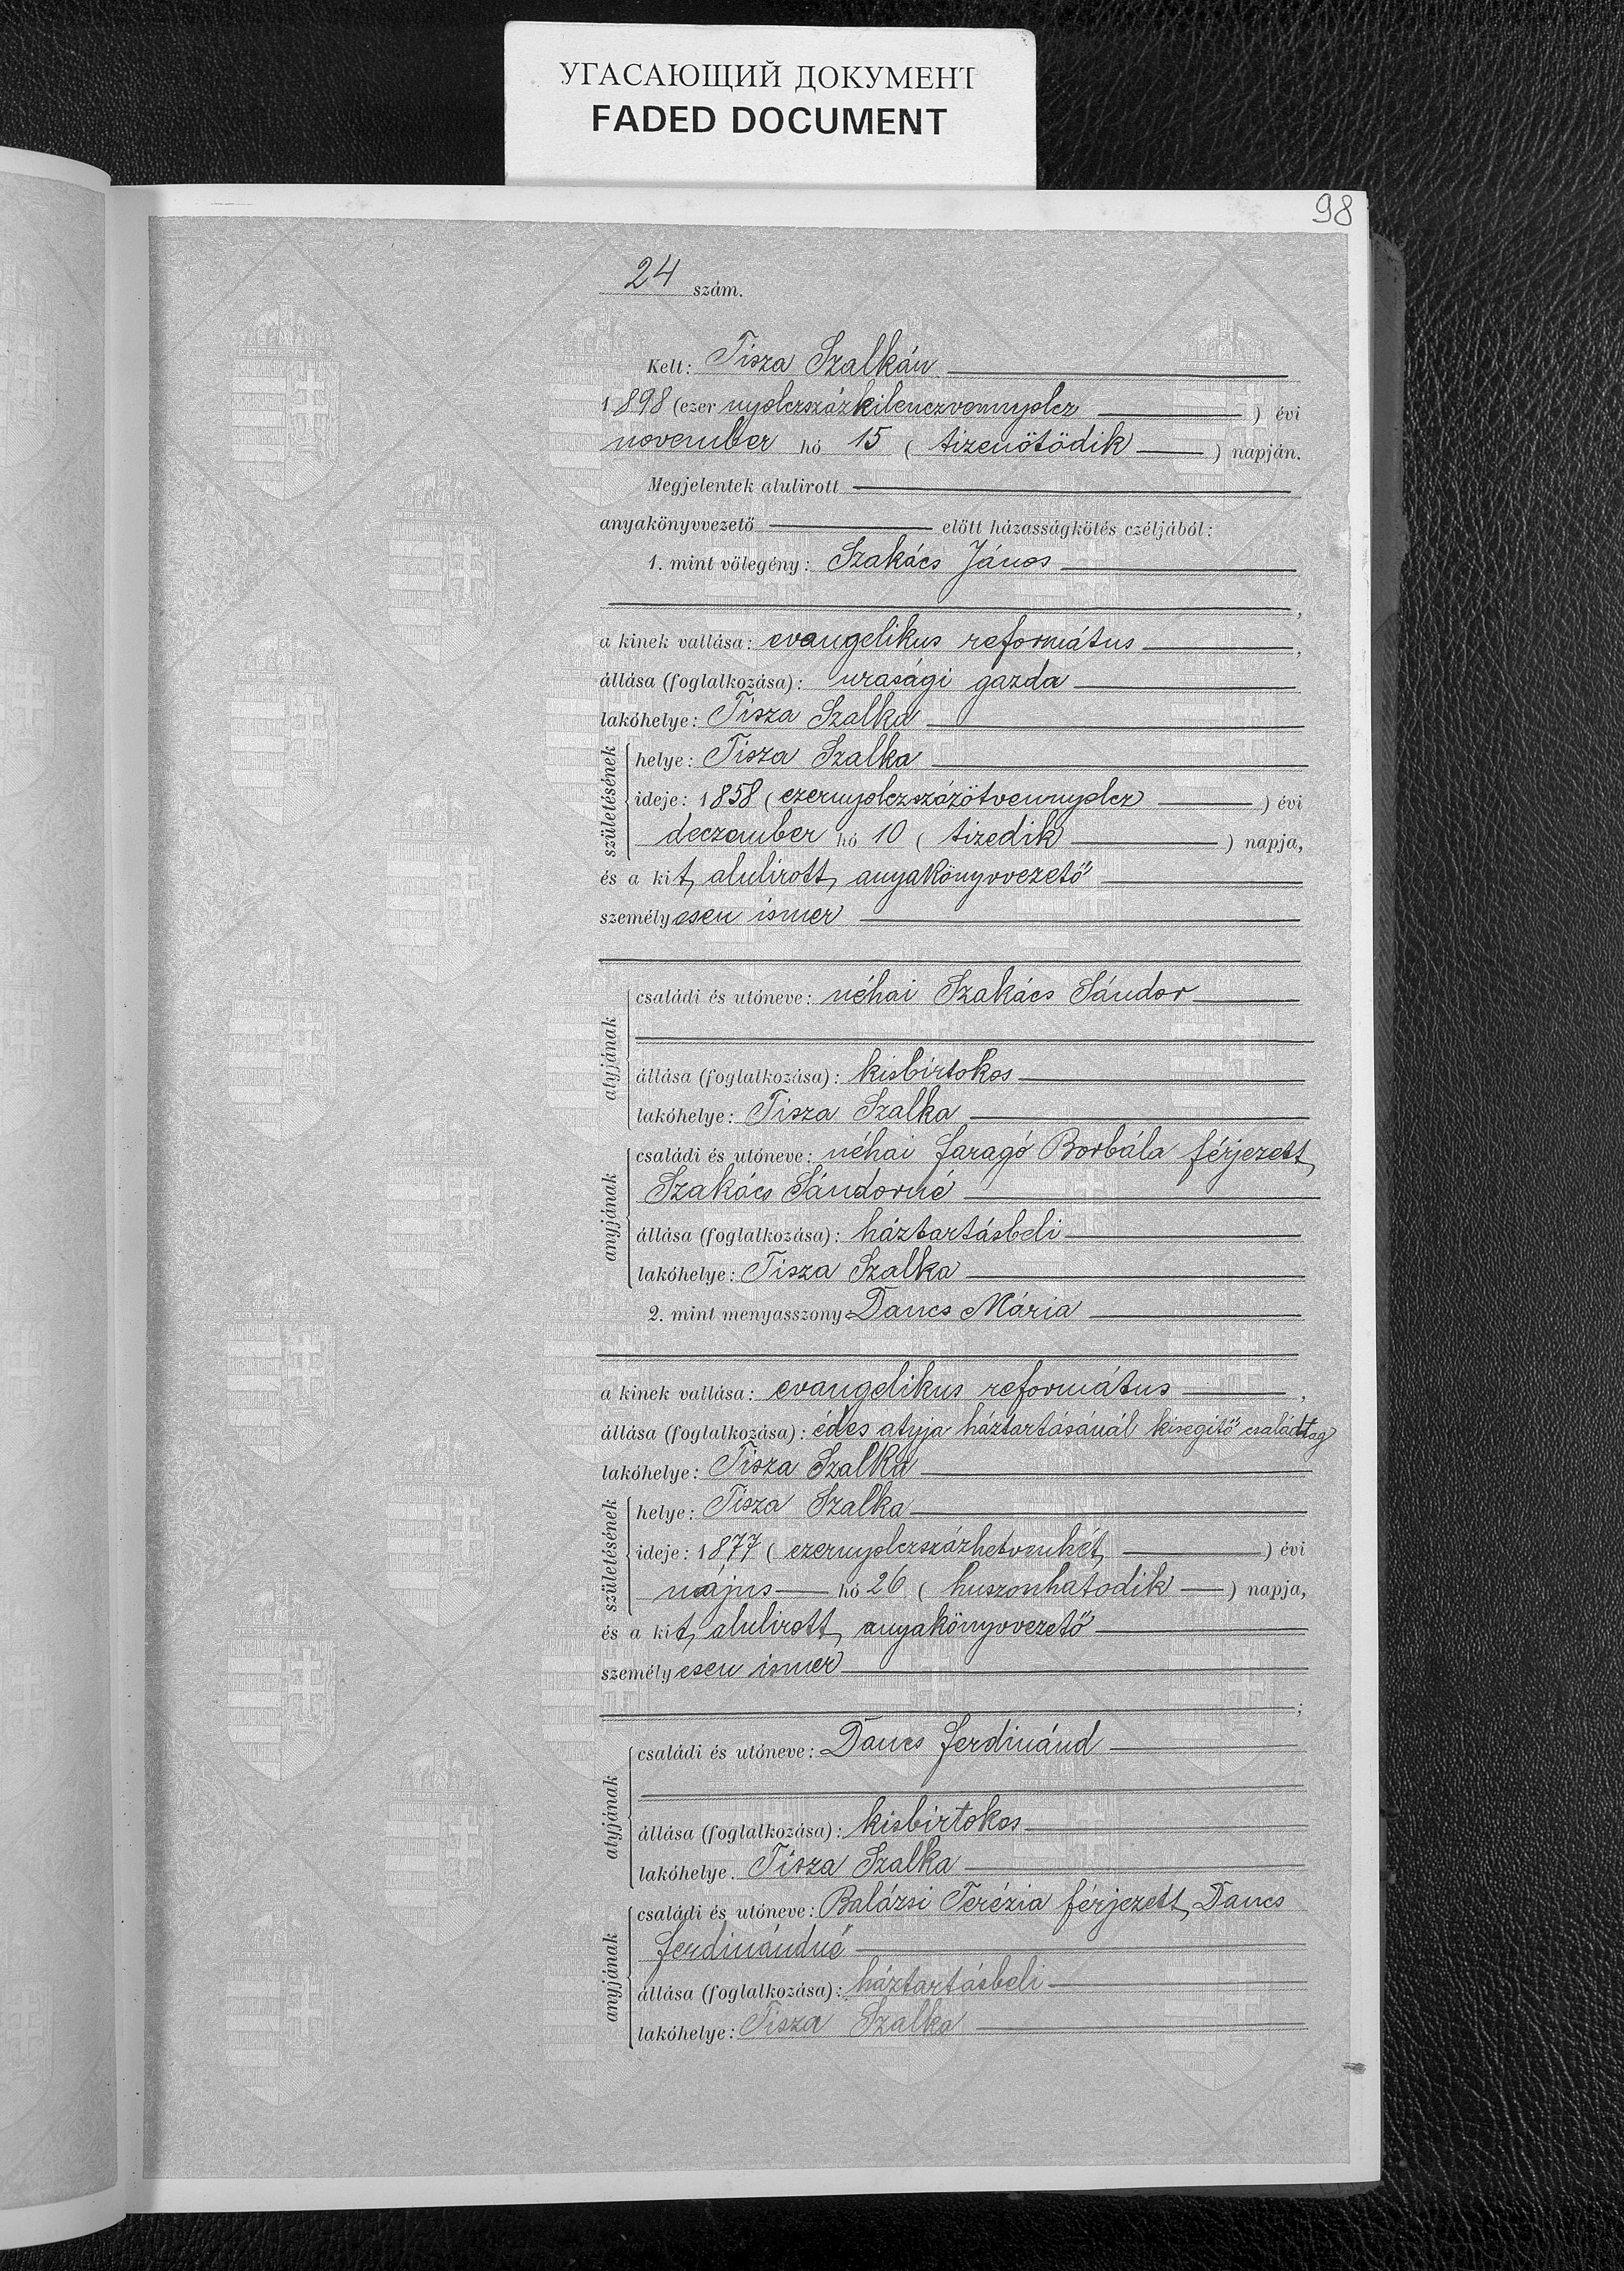 УГАСАЮЩИЙ ДОКУМЕНТ
FADED DOCUMENT
98
24 szám.
Kelt: Tisza Szalkán
1898 (ezer nyolczszázkilenczvennyolcz) évi
november hó 15 (tizenötödik) napján.
Megjelentek alulirott
anyakönyvvezető előtt házasságkötés czéljából:
1. mint vőlegény: Szakács János
,
a kinek vallása: evangelikus református,
állása (foglalkozása): urasági gazda
lakóhelye: Tisza Szalka
születésének
helye: Tisza Szalka
ideje: 1858 (ezernyolczszázötvennyolcz) évi
deczember hó 10 (tizedik) napja,
és a kit, alulirott, anyakönyvvezető
személyesen ismer
atyjának
családi és utóneve: néhai Szakács Sándor
állása (foglalkozása): kisbirtokos
lakóhelye: Tisza Szalka
anyjának
családi és utóneve: néhai Faragó Borbála férjezett,
Szakács Sándorné
állása (foglalkozása): háztartásbeli
lakóhelye: Tisza Szalka
2. mint menyasszony Dancs Mária
a kinek vallása: evangelikus református,
állása (foglalkozása): édes atyja háztartásánál kisegitő családtag
lakóhelye: Tisza Szalka
születésének
helye: Tisza Szalka
ideje: 1877 (ezernyolczszázhetvenhét,) évi
május hó 26 (huszonhatodik) napja,
és a kit, alulirott, anyakönyvvezető
személyesen ismer
;
atyjának
családi és utóneve: Dancs Ferdinánd
állása (foglalkozása): kisbirtokos
lakóhelye. Tisza Szalka
anyjának
családi és utóneve: Balázsi Terézia férjezett, Dancs
Ferdinándné
állása (foglalkozása): háztartásbeli
lakóhelye: Tisza Szalka